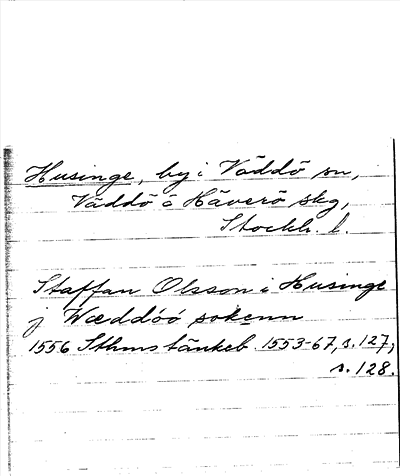 Husinge, by i Väddö sn,
Väddö å Häverö skg,
Stockh. l.
Staffan Olsson i Husinge
j Wæddöö sokenn
1556 Sthms tänkeb. 1553-67, s. 127;
s. 128.